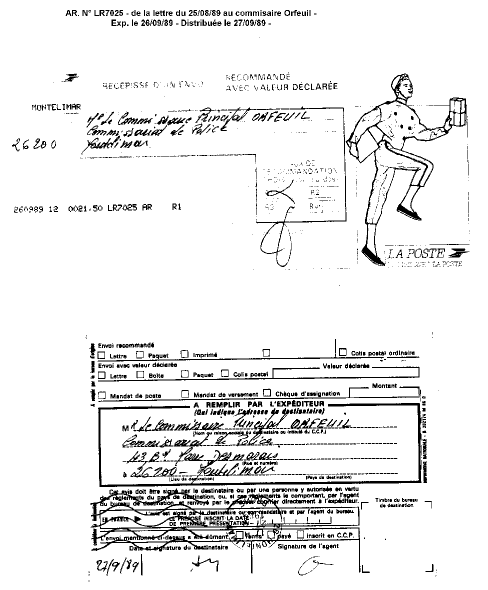 AR. N° LR7025 - de la lettre du 25/08/89 au commisaire Orfeuil -
Exp. le 26/09/89 - Distribuée le 27/09/89 -
RECOMMANDÉ
RÉCÉPISSÉ D'UN ENVOI AVEC VALEUR DÉCLARÉE
MONTELIMAR
Mr Le Commissaire Principal ORFEUIL
Commissariat de Police
26200 Montélimar
TAUX DE
RECOMMANDATION
R2
R3
260989 12 0021.50 LR7025 AR R1
LA POSTE
Envoi recommandé
Lettre Paquet Imprimé Colis postal ordinaire
Envoi avec valeur déclarée Valeur déclarée
Lettre Boîte Paquet Colis postal
Montant
Mandat de poste Mandat de versement Chèque d'assignation
A REMPLIR PAR L'EXPÉDITEUR
(Qui indique l'adresse du destinataire)
Mr Le Commissaire Principal ORFEUIL
(Nom ou raison sociale du destinataire ou intitulé du C.C.P.)
Commissariat de Police
43 Bd
(Rue et numéro)
à 26200 - Montélimar
(Lieu de destination) (Pays de destination)
Cet avis doit être signé par le destinataire ou par une personne y autorisée en vertu
des règlements du pays de destination, ou, si ces règlements le comportent, par l'agent
du bureau de destination, et renvoyé par le premier courrier directement à l'expéditeur.
Timbre du bureau
de destination
L'avis est signé par le destinataire ou son mandataire et par l'agent du bureau
EN FRANCE DE PRÉPOSÉ INSCRIT LA DATE
DE PREMIÈRE PRÉSENTATION
L'envoi mentionné ci-dessus a été dûment remis payé inscrit en C.C.P.
Date et signature du destinataire Signature de l'agent
27/9/89